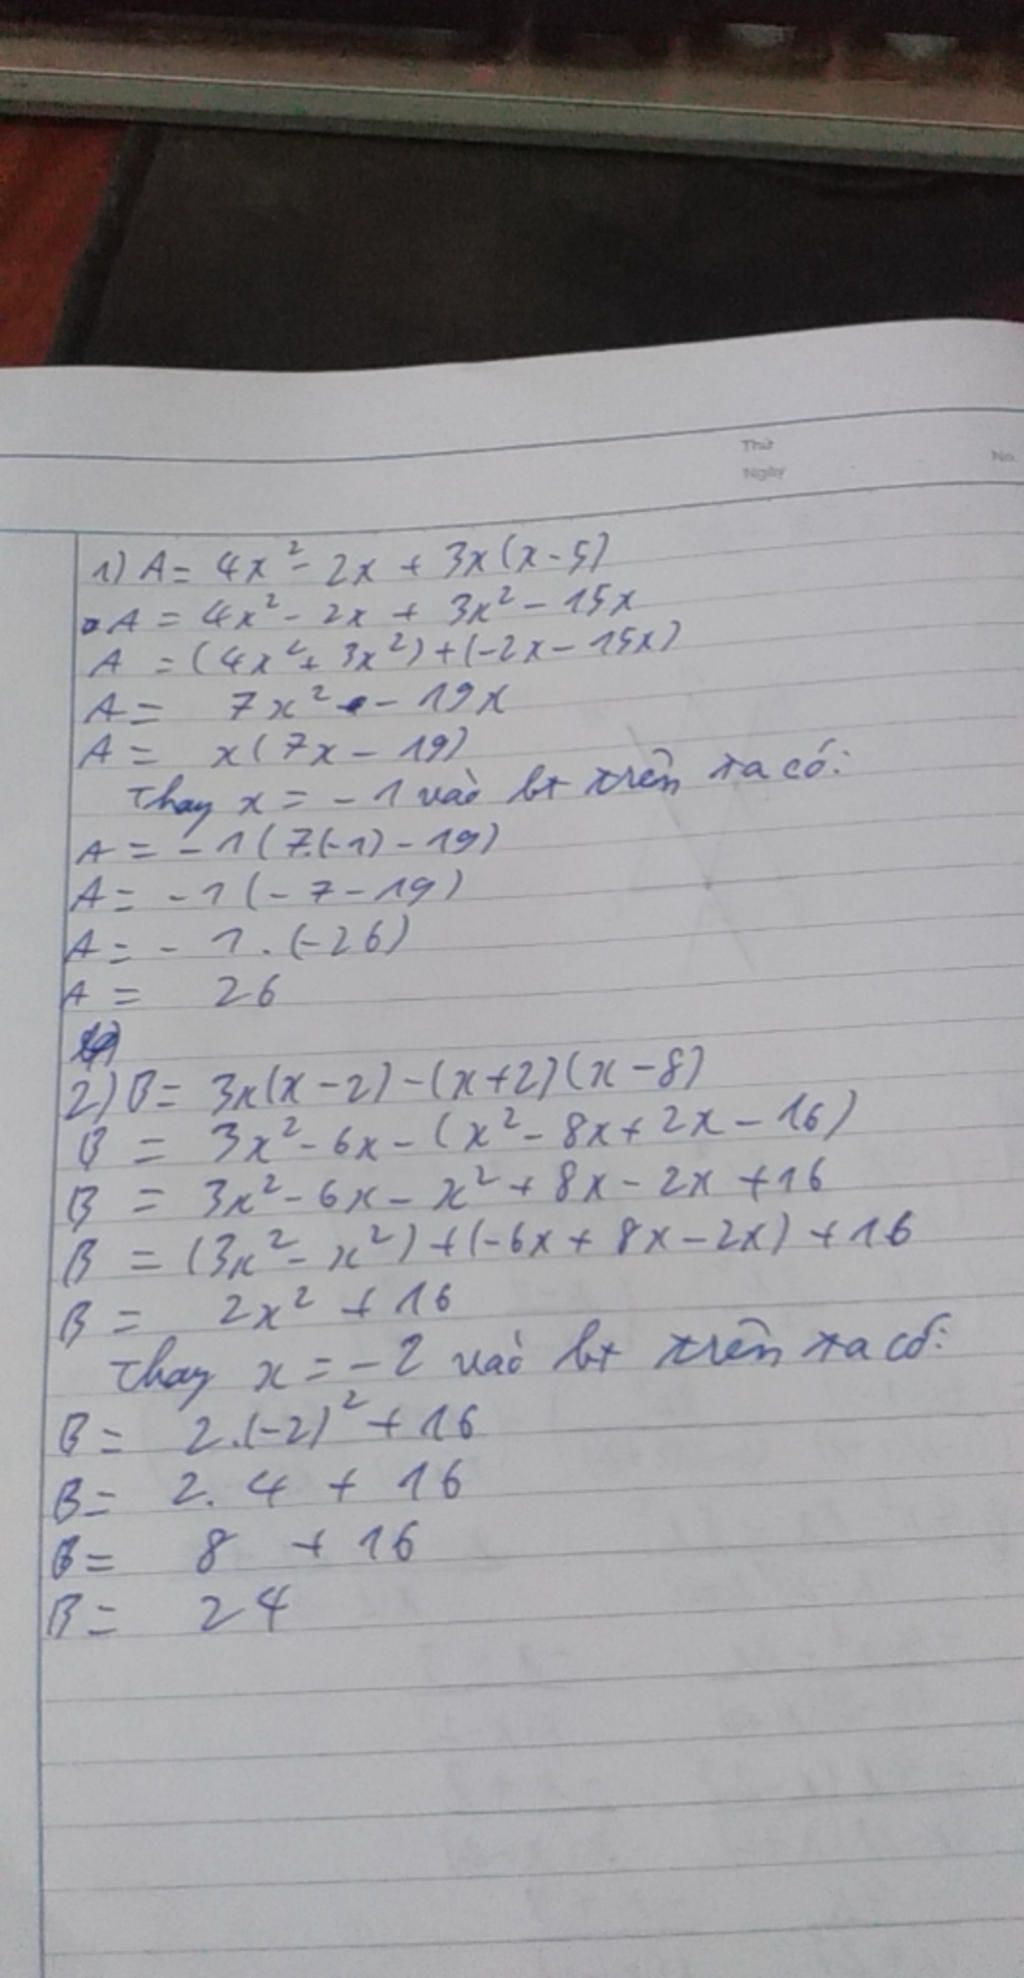 Thứ
Ngày
No.
1) A = 4x² - 2x + 3x(x - 5)
A = 4x² - 2x + 3x² - 15x
A = (4x² + 3x²) + (-2x - 15x)
A = 7x² - 19x
A = x(7x - 19)
Thay x = -1 vào bt trên ta có:
A = -1(7.(-1) - 19)
A = -1(-7 - 19)
A = -1.(-26)
A = 26
2) B = 3x(x - 2) - (x + 2)(x - 8)
B = 3x² - 6x - (x² - 8x + 2x - 16)
B = 3x² - 6x - x² + 8x - 2x + 16
B = (3x² - x²) + (-6x + 8x - 2x) + 16
B = 2x² + 16
Thay x = -2 vào bt trên ta có:
B = 2.(-2)² + 16
B = 2.4 + 16
B = 8 + 16
B = 24